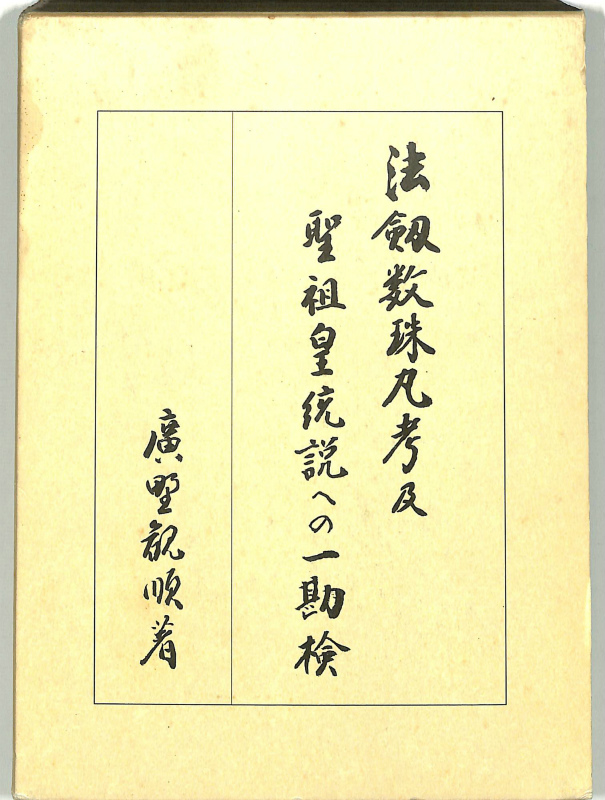 法劔数珠丸考及
聖祖皇統説への一勘検
廣野観順著